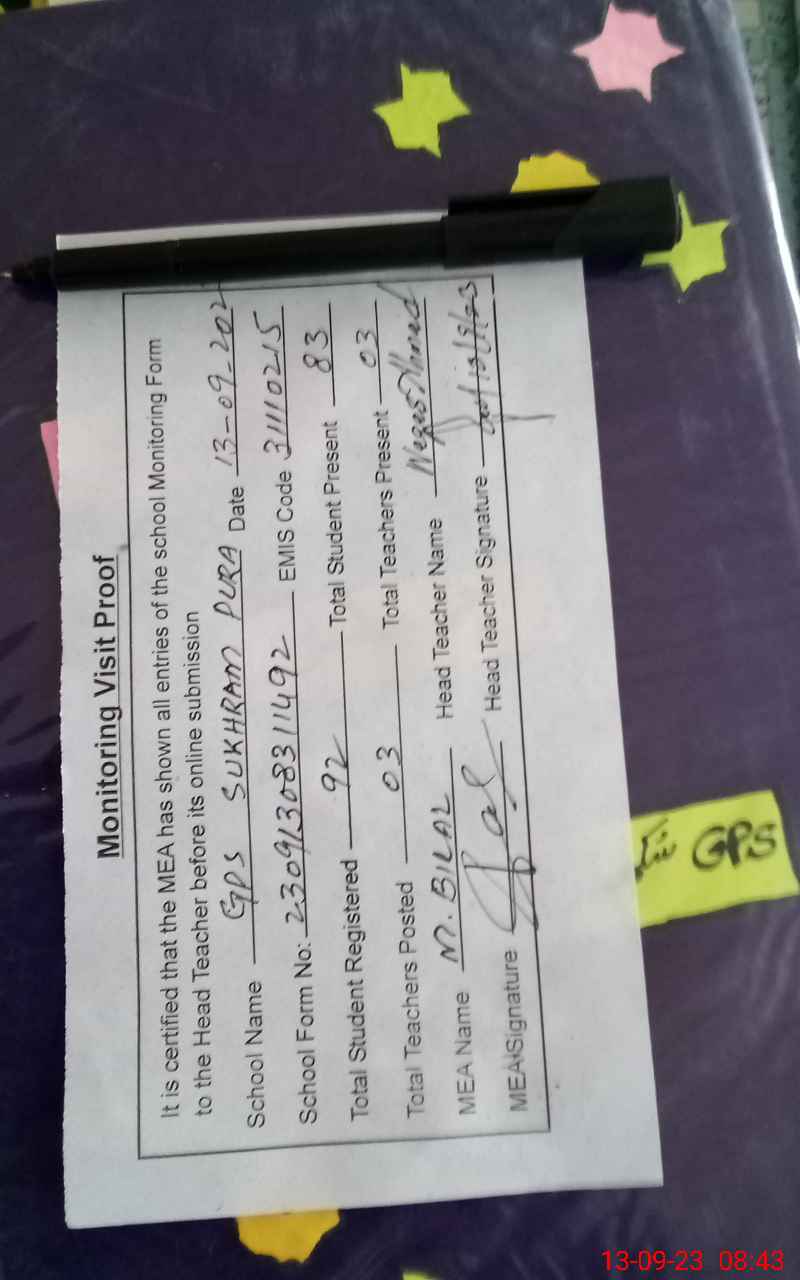 Monitoring Visit Proof
It is certified that the MEA has shown all entries of the school Monitoring Form
to the Head Teacher before its online submission
School Name GPS SUKHRAM PURA Date 13-09-202
School Form No: 23091308311492 EMIS Code 31110215
Total Student Registered 92 Total Student Present 83
Total Teachers Posted 03 Total Teachers Present 03
MEA Name M. BILAL Head Teacher Name Ahmed
MEA Signature Head Teacher Signature
GPS
13-09-23 08:43